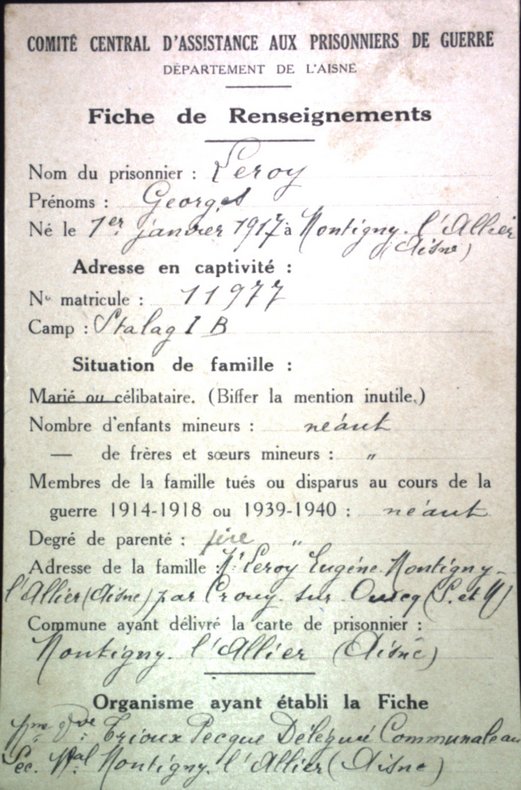 COMITÉ CENTRAL D'ASSISTANCE AUX PRISONNIERS DE GUERRE
DÉPARTEMENT DE L'AISNE
Fiche de Renseignements
Nom du prisonnier : Leroy
Prénoms : Georges
Né le 1er janvier 1917 à Montigny-l'Allier
(Aisne)
Adresse en captivité :
No matricule : 11977
Camp : Stalag I B
Situation de famille :
Marié ou célibataire. (Biffer la mention inutile.)
Nombre d'enfants mineurs : néant
— de frères et sœurs mineurs : "
Membres de la famille tués ou disparus au cours de la
guerre 1914-1918 ou 1939-1940 : néant
Degré de parenté : père "
Adresse de la famille Mr Leroy Eugène Montigny-
l'Allier (Aisne) par Crouy-sur-Ourcq (S. et M)
Commune ayant délivré la carte de prisonnier :
Montigny-l'Allier (Aisne)
Organisme ayant établi la Fiche
Mme Vve Trioux Pecque Délégué Communale au
Sec. Nal Montigny-l'Allier (Aisne)